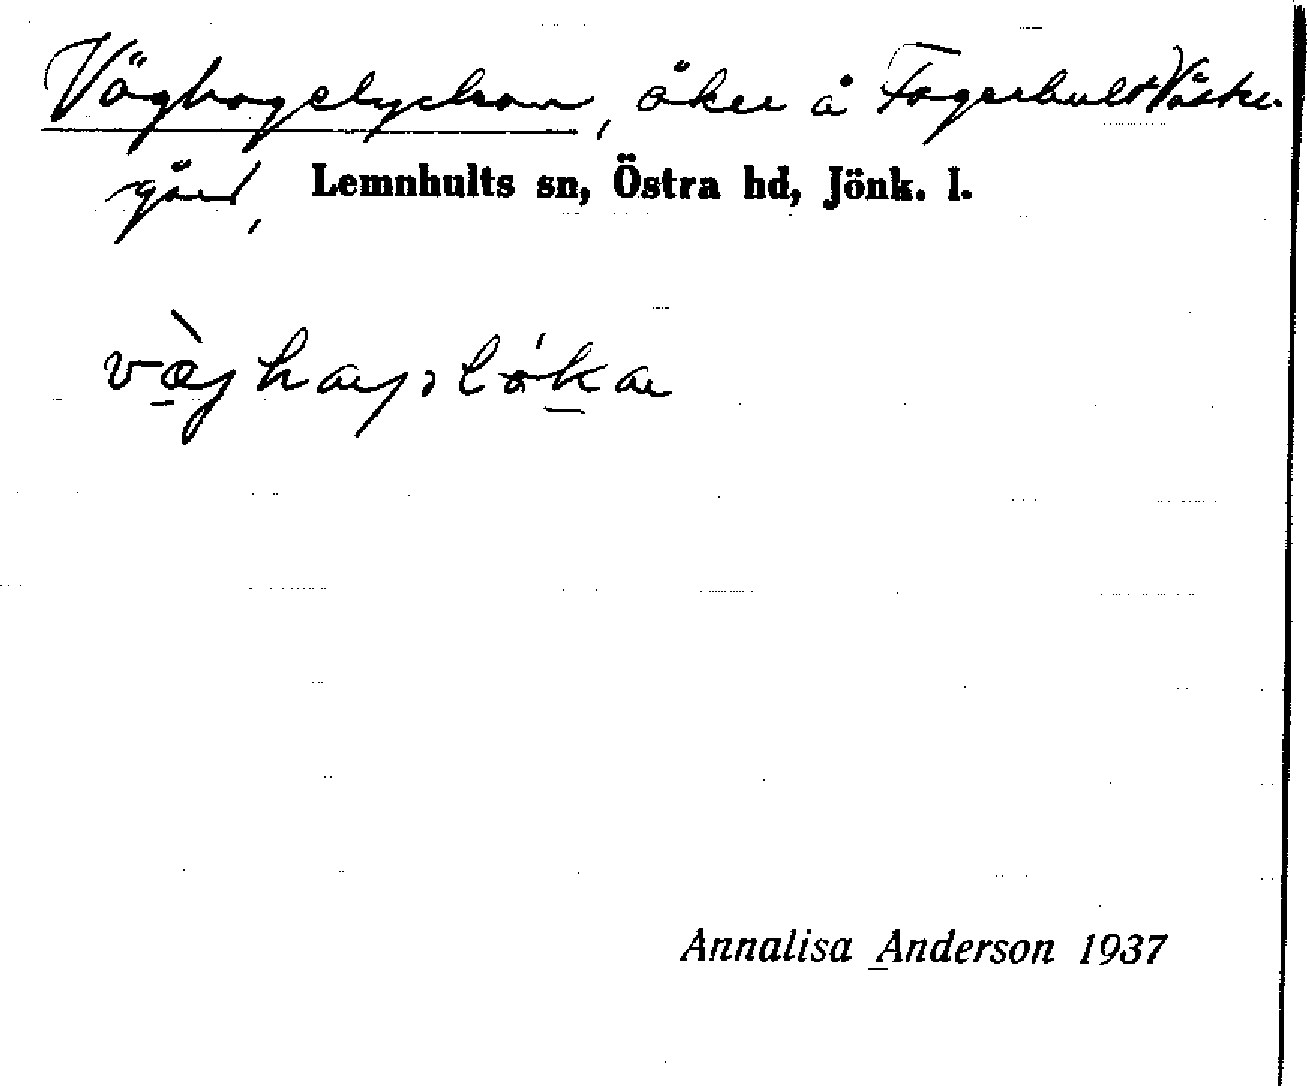 Väghagelyckan, åker å Fagerhult Väster-
gård, Lemnhults sn, Östra hd, Jönk. l.
Annalisa Anderson 1937